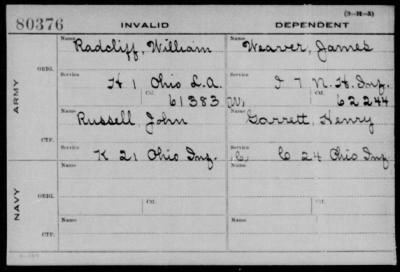 (3-M-5)
80376 INVALID DEPENDENT
Name Radcliff, William Name Weaver, James
ARMY ORIG. Service H 1 Ohio L.A. Service I 7 N.H. Inf.
Ctf. 61383 (W) Ctf. 62244
CTF. Name Russell, John Name Garrett, Henry
Service K 21 Ohio Inf. Service C 24 Ohio Inf
NAVY ORIG. Ctf. Ctf.
Name Name
CTF.